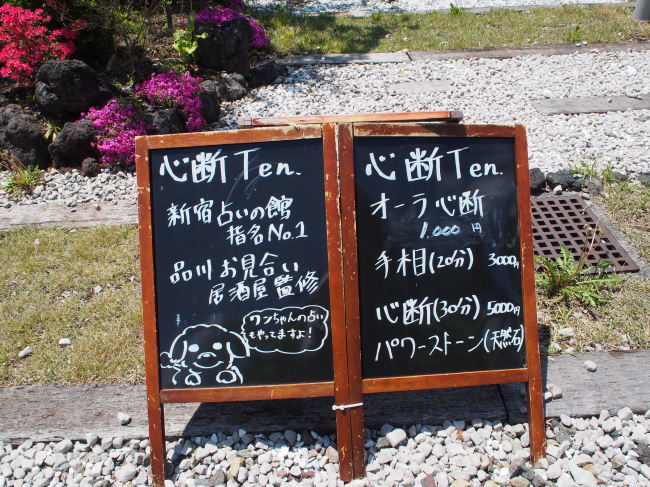 心断Ten.
新宿占いの館
指名No.1
品川お見合い
居酒屋監修
ワンちゃんの占い
もやってますよ!
心断Ten.
オーラ心断
1,000円
手相(20分) 3000円
心断(30分) 5000円
パワーストーン(天然石)